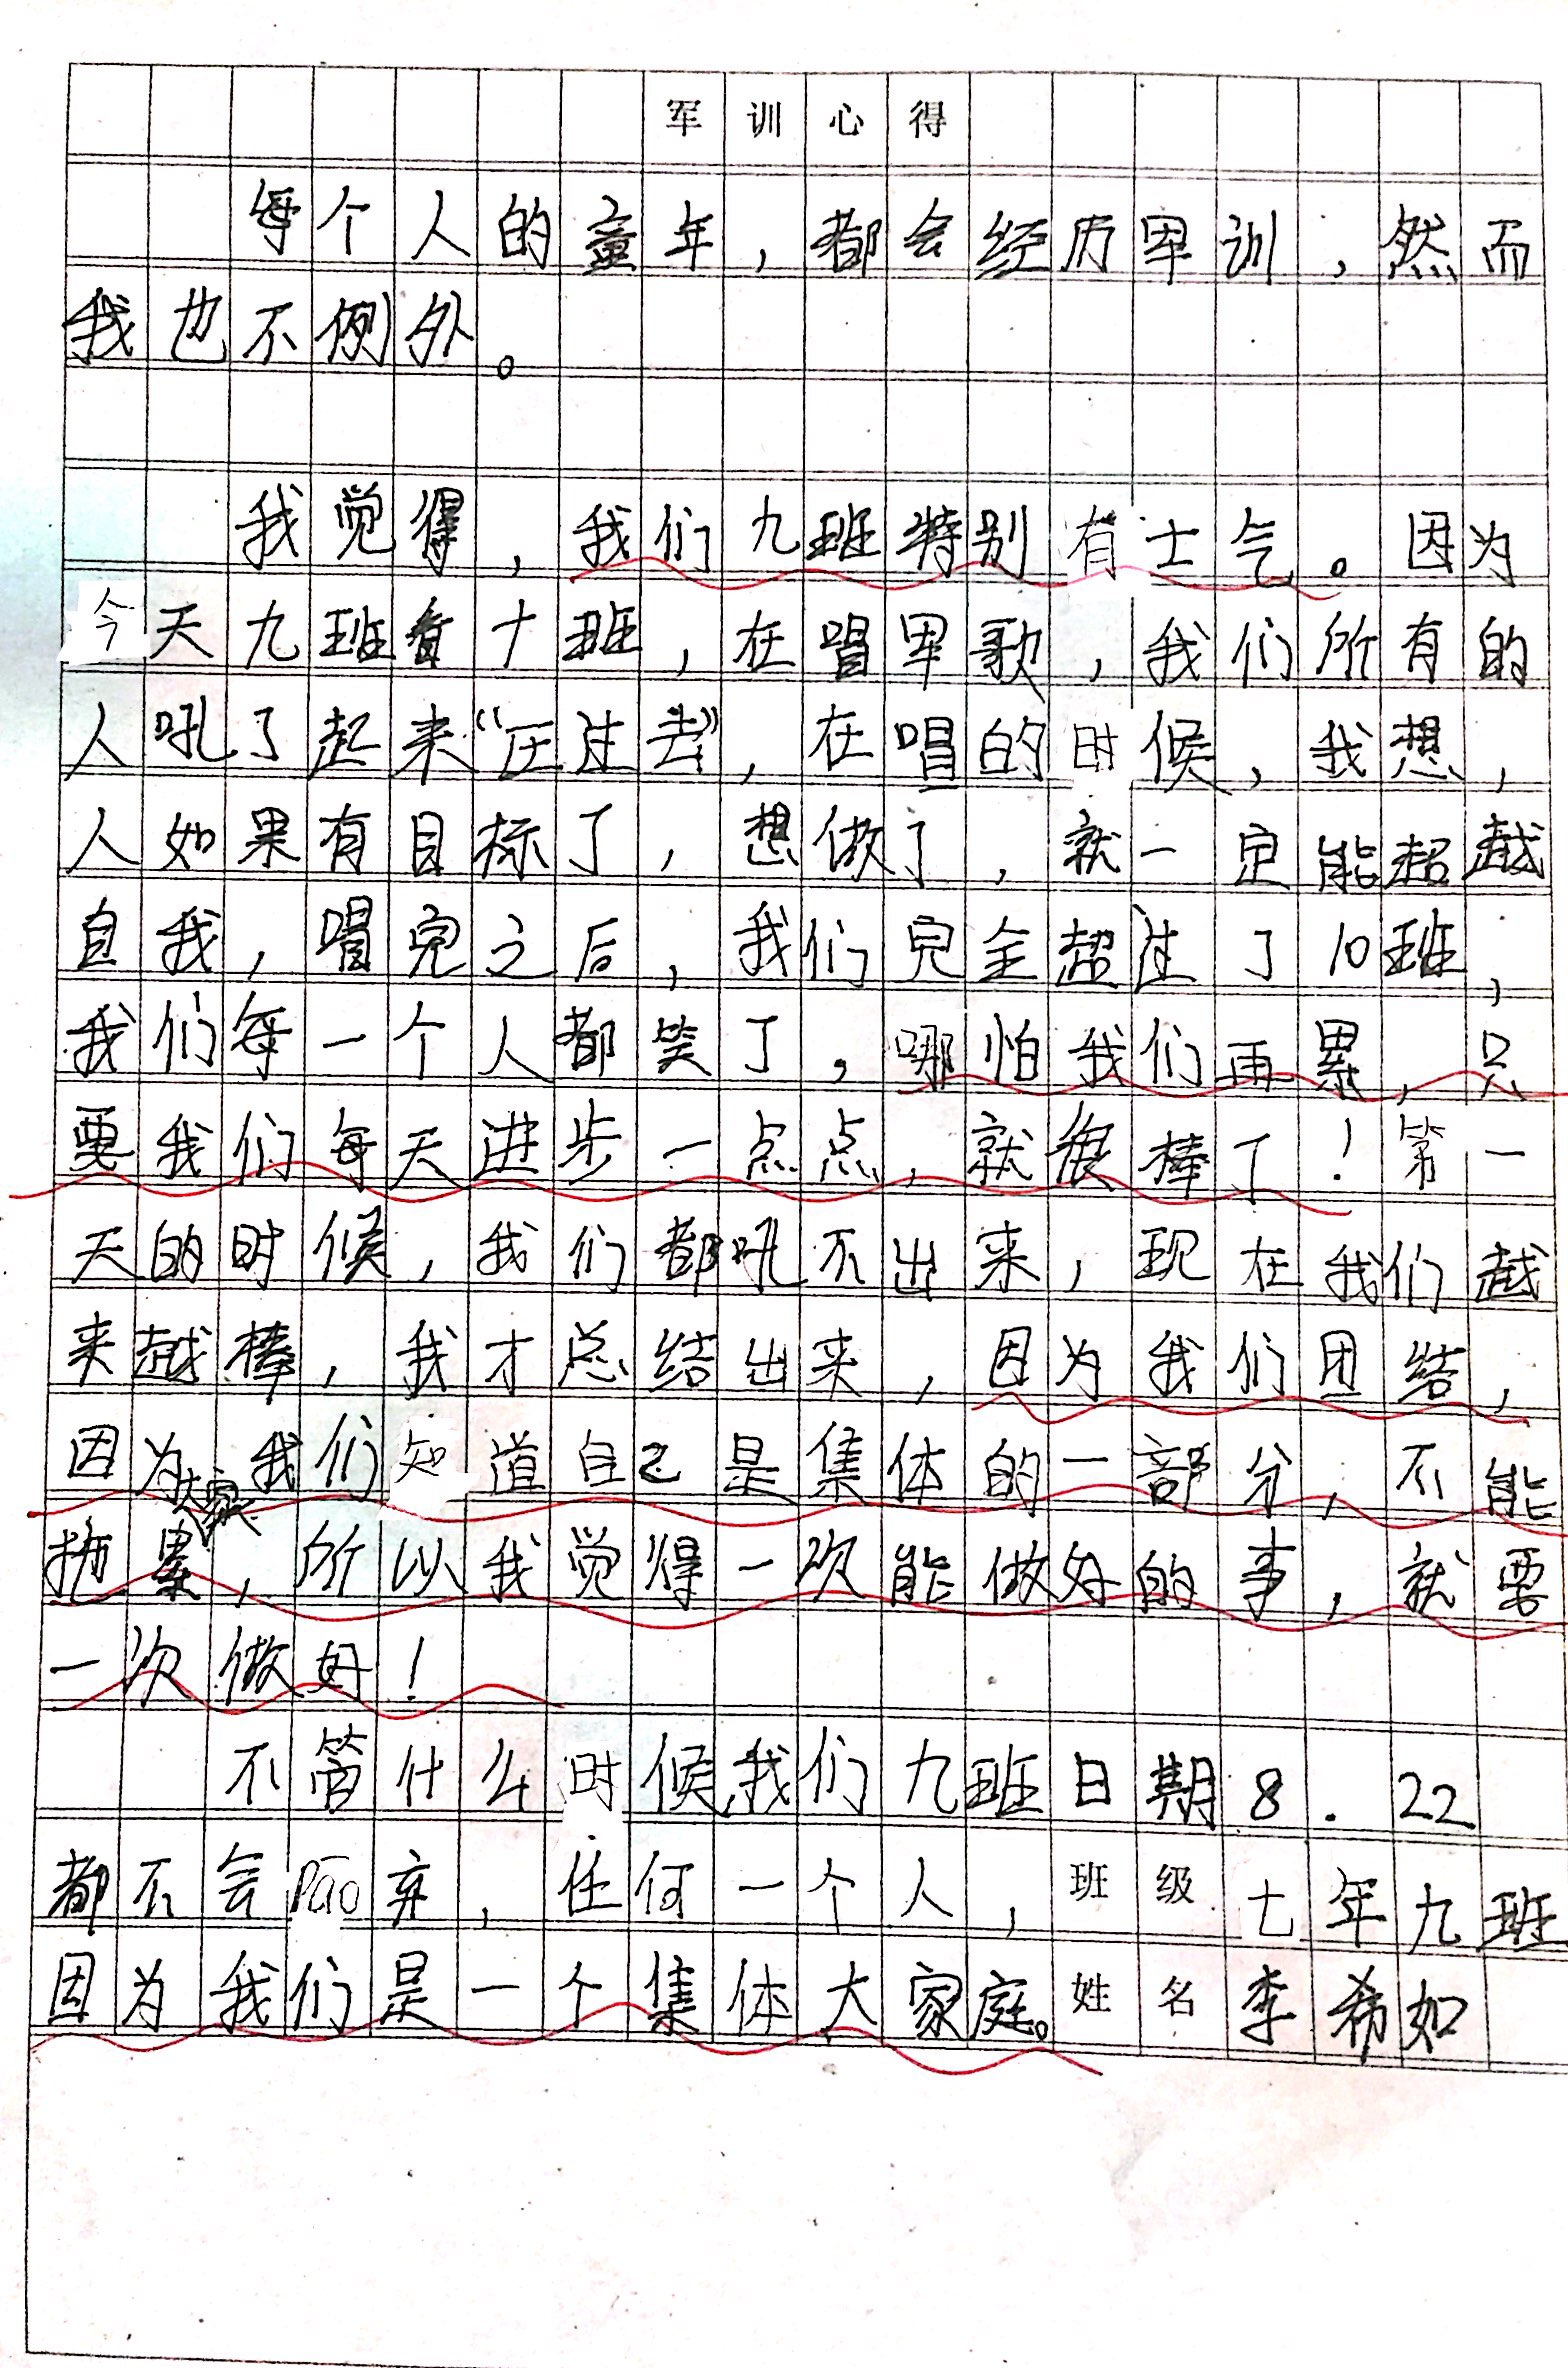 军训心得
每个人的童年，都会经历军训，然而
我也不例外。
我觉得，我们九班特别有士气。因为
今天九班看十班，在唱军歌，我们所有的
人吼了起来“压过去”，在唱的时候，我想，
人如果有目标了，想做了，就一定能超越
自我，唱完之后，我们完全超过了10班，
我们每一个人都笑了，哪怕我们再累，只
要我们每天进步一点点，就很棒了！第一
天的时候，我们都吼不出来，现在我们越
来越棒，我才总结出来，因为我们团结，
因为我们知道自己是集体的一部分，不能
拖累大家，所以我觉得一次能做好的事，就要
一次做好！
不管什么时候我们九班日期8.22
都不会pāo弃，任何一个人，班级七年九班
因为我们是一个集体大家庭。姓名李希如